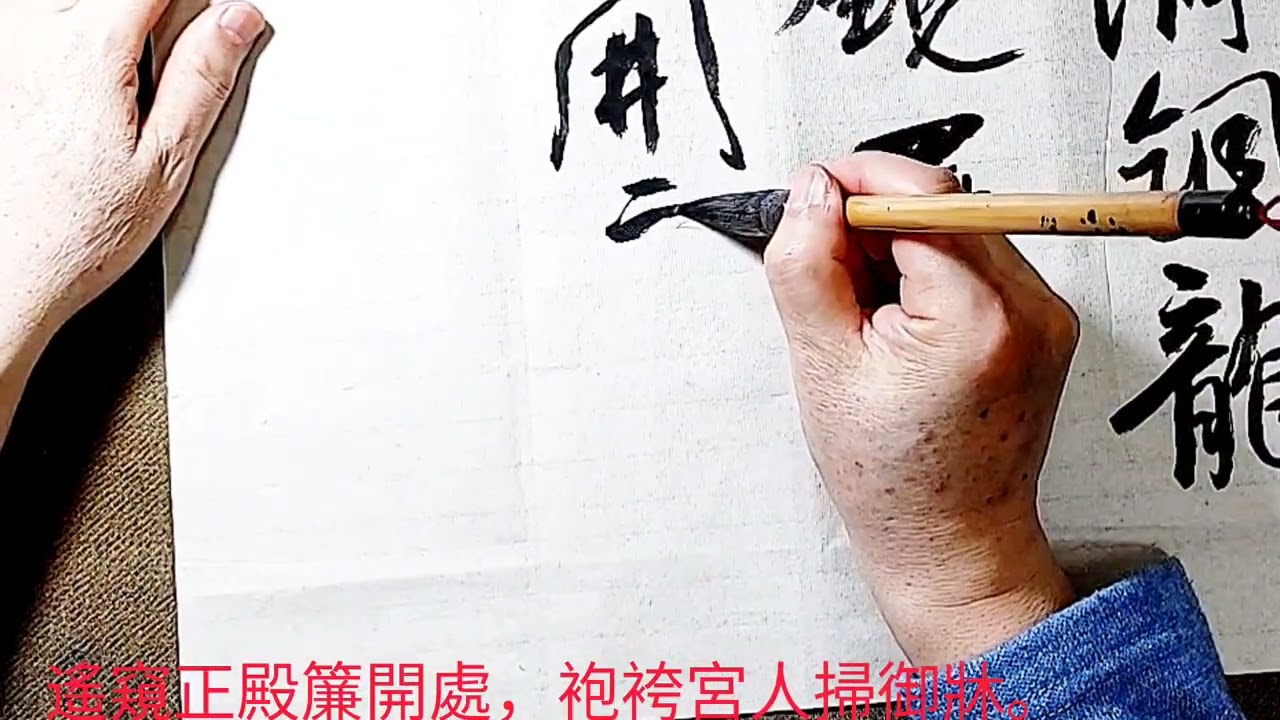 銅龍
開
遙窺正殿簾開處，袍袴宮人掃御牀。